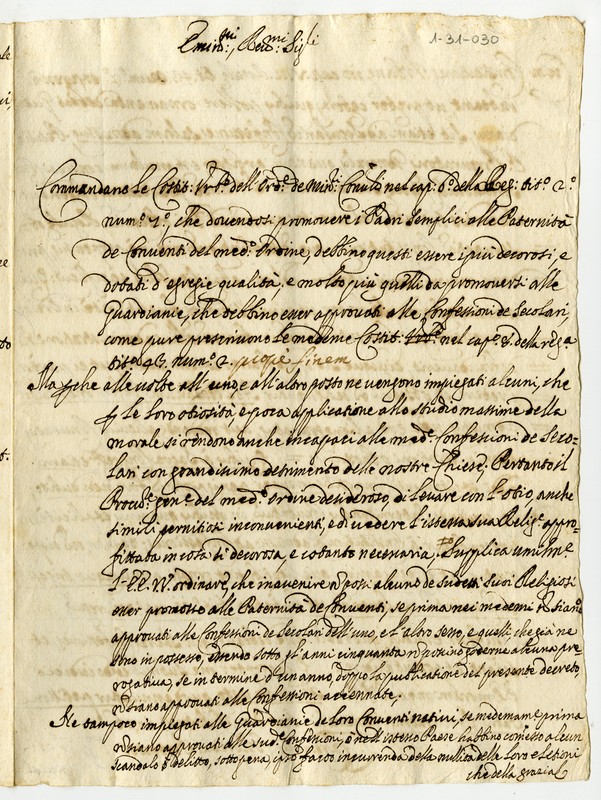 Emin:mi, Reu:mi Sig:i
1-31-030
Commandano le Costit: Vrb:e dell'Ord:e de Min:i Conu:li nel cap: 6º della Reg: tit:º 2:º
num:º 1:º, che douendosi promouere i Padri semplici alle Paternità
de Conuenti del med:º Ordine, debbino questi essere i più decorosi, e
dotati d'egregie qualità, e molto più quelli da promouersi alle
Guardianie, che debbino esser approuati alle Confessioni de Secolari,
come pure prescriuono le medeme Costit: nel cap:º 8. della reg:a
tit:º 43. num:º 2. finem
Ma che alle uolte all'uno, e all'altro posto ne uengono impiegati alcuni, che
le loro otiosità, e poca applicatione allo studio massime della
morale si rendono anche incapaci alle med:e Confessioni de Seco-
lari con grandissimo detrimento delle nostre Chiese; Pertanto il
Procu:re gen:le del med:º Ordine desideroso, di leuare con l'otio, anche
simili pernitiosi inconuenienti, e di uedere l'istessa sua Relig:e appro-
fittata in cosa sì decorosa, e cotanto necessaria; Supplica umilm:e
l'EE. VV. ordinare, che in auenire ñ possi alcuno de sudetti suoi Religiosi
esser promosso alle Paternità de Conuenti, se prima nei medemi ñ siano
approuati alle Confessioni de Secolari dell'uno, e l'altro sesso, e quelli che già ne
sino in possesso, essendo sotto gl'anni cinquanta ñ possino goderne alcuna pre
rogatiua, se in termine d'un anno, doppo la publicatione del presente decreto,
ñ siano approuati alle Confessioni accennate.
Ne tampoco impiegati alle Guardianie de loro Conuenti natiui, se medemam:e prima
ñ siano approuati alle sud:e Confessioni, ò nell'istesso Paese habbino comesso alcun
scandalo ò delitto, sotto pena, ipso facto incurrenda della nullità della loro eletione
che della grazia